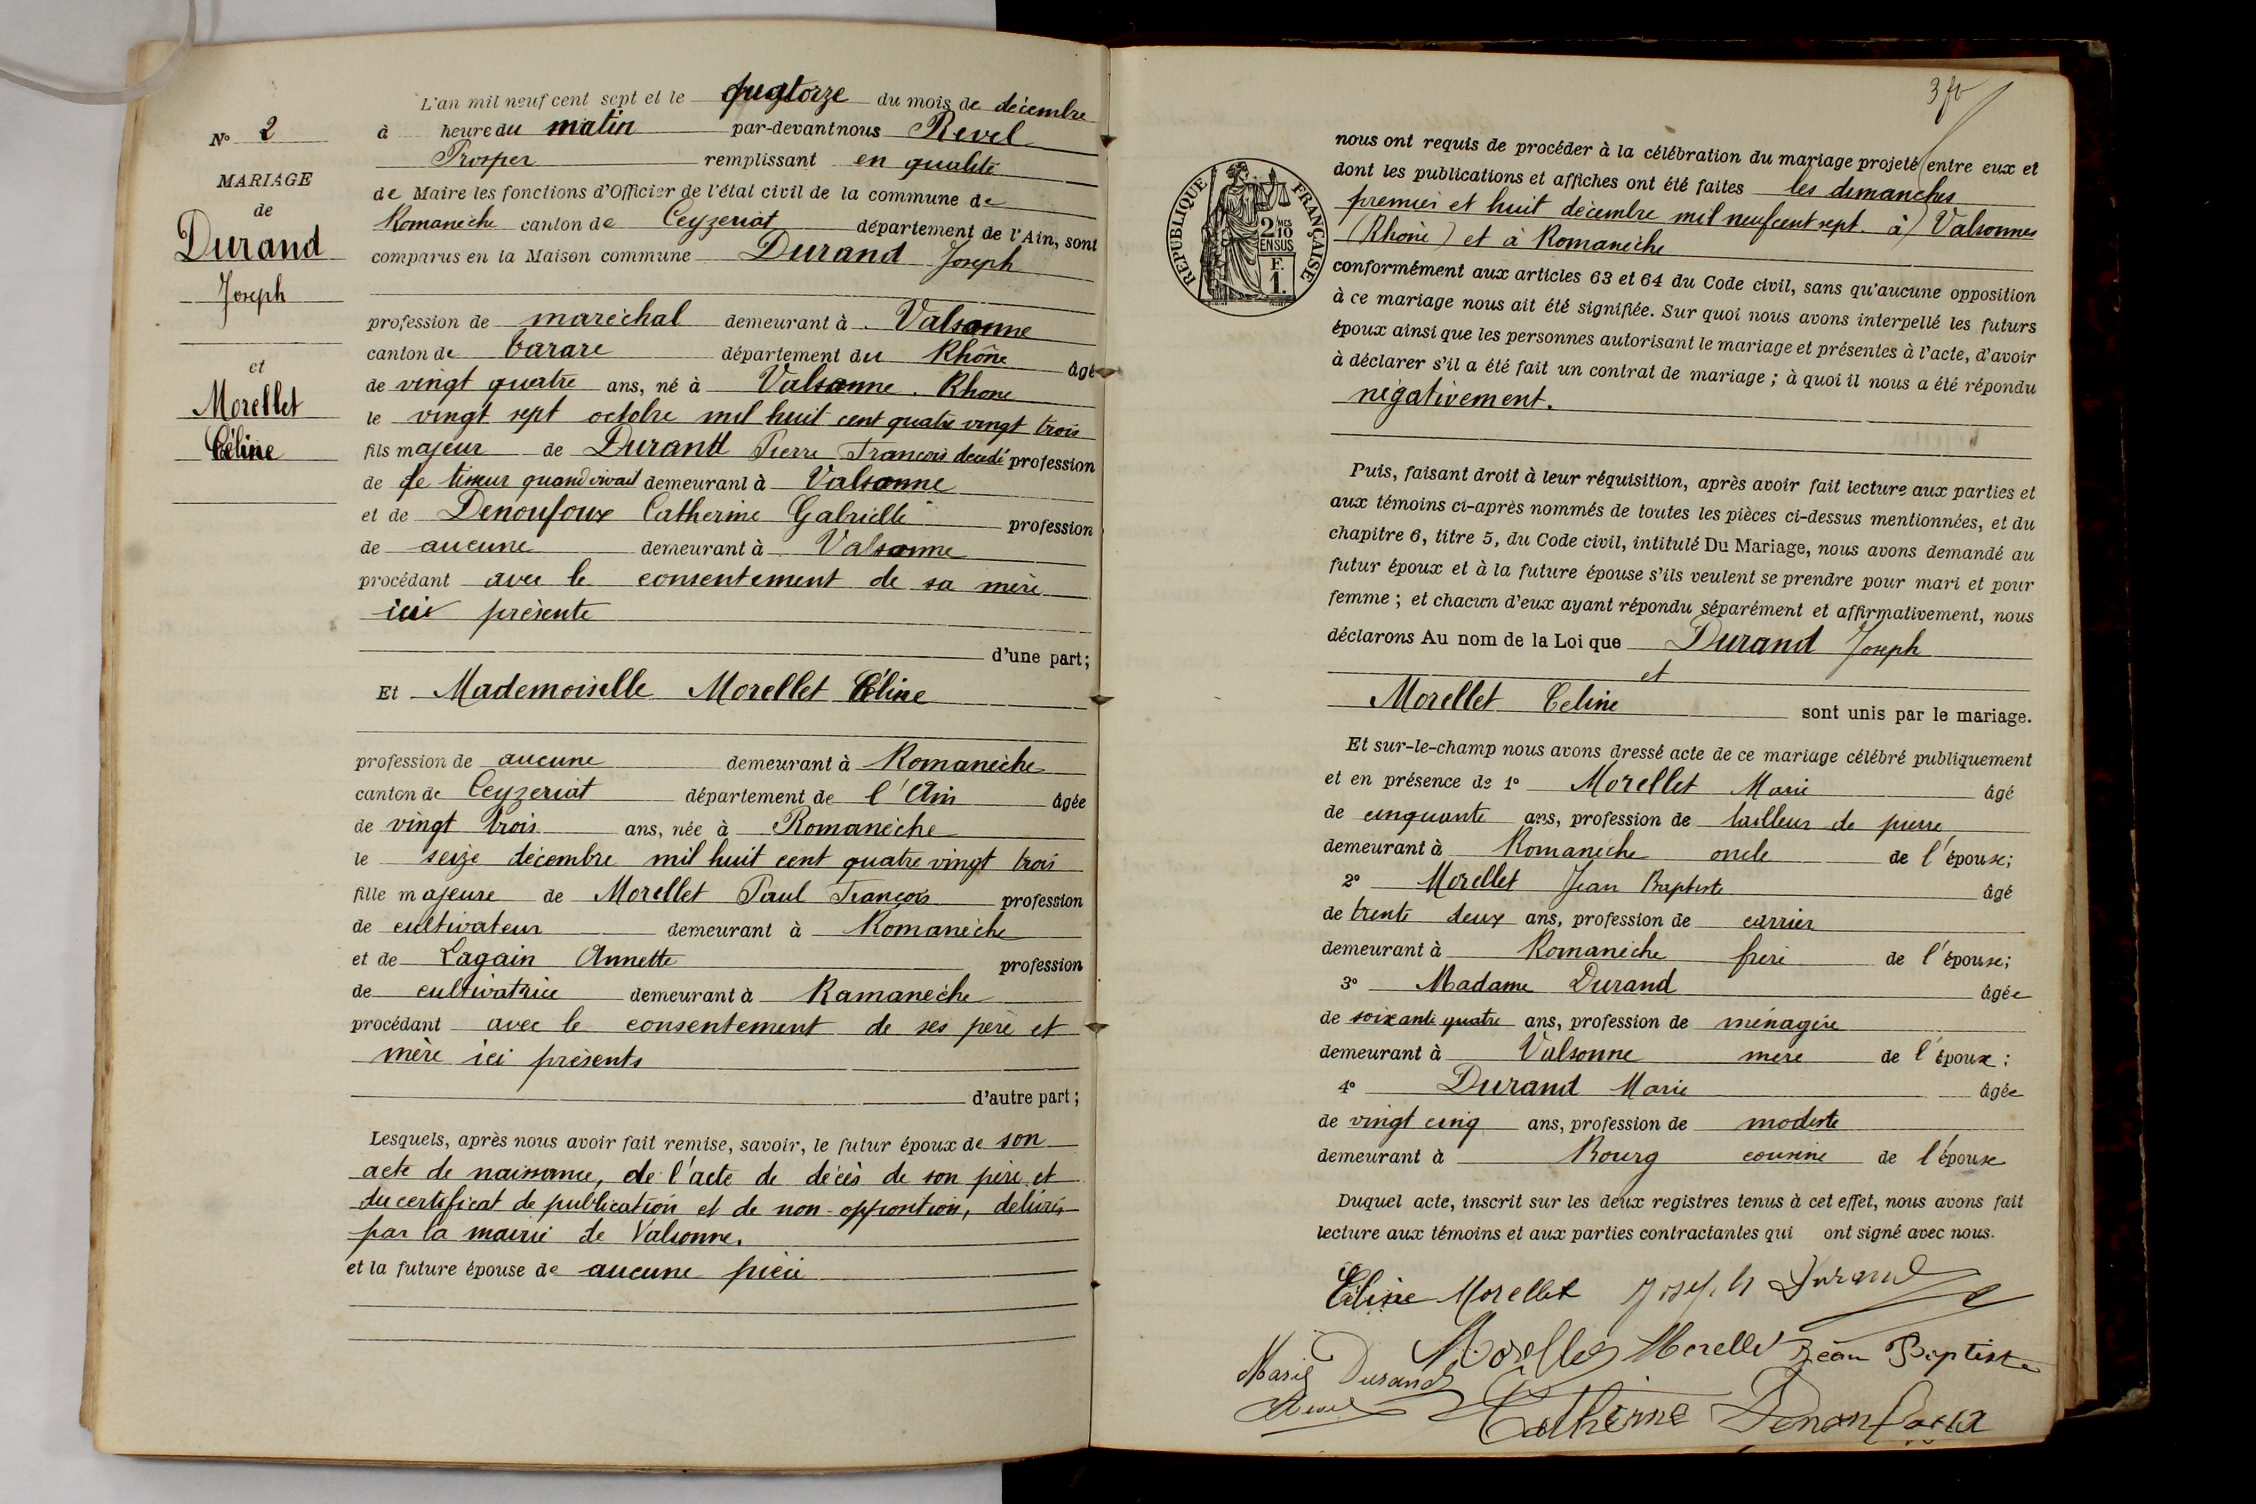 L'an mil neuf cent sept et le quatorze du mois de décembre
à heure du matin par-devant nous Revel
Prosper remplissant en qualité
de Maire les fonctions d'Officier de l'état civil de la commune de
Romanèche canton de Ceyzeriat département de l'Ain, sont
comparus en la Maison commune Durand Joseph
profession de maréchal demeurant à Valsonne
canton de Tarare département du Rhône âgé
de vingt quatre ans, né à Valsonne. Rhone
le vingt sept octobre mil huit cent quatre vingt trois
fils majeur de Durand Pierre François décedé profession
de de tisseur quand vivait demeurant à Valsonne
et de Denoufoux Catherine Gabrielle profession
de aucune demeurant à Valsonne
procédant avec le consentement de sa mère
ici présente
d'une part;
Et Mademoiselle Morellet Céline
profession de aucune demeurant à Romanèche
canton de Ceyzeriat département de l'Ain âgée
de vingt trois ans, née à Romanèche
le seize décembre mil huit cent quatre vingt trois
fille majeure de Morellet Paul François profession
de cultivateur demeurant à Romanèche
et de Lagain Annette profession
de cultivatrice demeurant à Ramanèche
procédant avec le consentement de ses père et
mère ici présents
d'autre part;
Lesquels, après nous avoir fait remise, savoir, le futur époux de son
acte de naissance, de l'acte de décès de son père et
du certificat de publication et de non-opposition, délivrés
par la mairie de Valsonne.
et la future épouse de aucune pièce
N° 2
MARIAGE
de
Durand
Joseph
et
Morellet
Céline
RÉPUBLIQUE FRANÇAISE
2/10 MES
EN SUS
F.
1.
nous ont requis de procéder à la célébration du mariage projeté entre eux et
dont les publications et affiches ont été faites les dimanches
premier et huit décembre mil neuf cent sept à Valsonnes
(Rhône) et à Romanèche
conformément aux articles 63 et 64 du Code civil, sans qu'aucune opposition
à ce mariage nous ait été signifiée. Sur quoi nous avons interpellé les futurs
époux ainsi que les personnes autorisant le mariage et présentes à l'acte, d'avoir
à déclarer s'il a été fait un contrat de mariage; à quoi il nous a été répondu
négativement.
Puis, faisant droit à leur réquisition, après avoir fait lecture aux parties et
aux témoins ci-après nommés de toutes les pièces ci-dessus mentionnées, et du
chapitre 6, titre 5, du Code civil, intitulé Du Mariage, nous avons demandé au
futur époux et à la future épouse s'ils veulent se prendre pour mari et pour
femme; et chacun d'eux ayant répondu séparément et affirmativement, nous
déclarons Au nom de la Loi que Durand Joseph
et
Morellet Celine sont unis par le mariage.
Et sur-le-champ nous avons dressé acte de ce mariage célébré publiquement
et en présence de 1° Morellet Marie âgé
de cinquante ans, profession de tailleur de pierre
demeurant à Romanèche oncle de l'épouse;
2° Morellet Jean Baptiste âgé
de trente deux ans, profession de carrier
demeurant à Romanèche frère de l'épouse;
3° Madame Durand âgée
de soixante quatre ans, profession de ménagère
demeurant à Valsonne mère de l'époux;
4° Durand Marie âgée
de vingt cinq ans, profession de modiste
demeurant à Bourg cousine de l'épouse
Duquel acte, inscrit sur les deux registres tenus à cet effet, nous avons fait
lecture aux témoins et aux parties contractantes qui ont signé avec nous.
Céline Morellet Joseph Durand
Morellet Morellet Jean Baptiste
Marie Durand
Revel Catherine Denoufoux